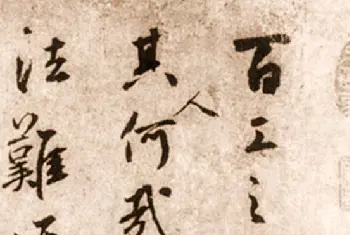 百工之
其何人哉
法難